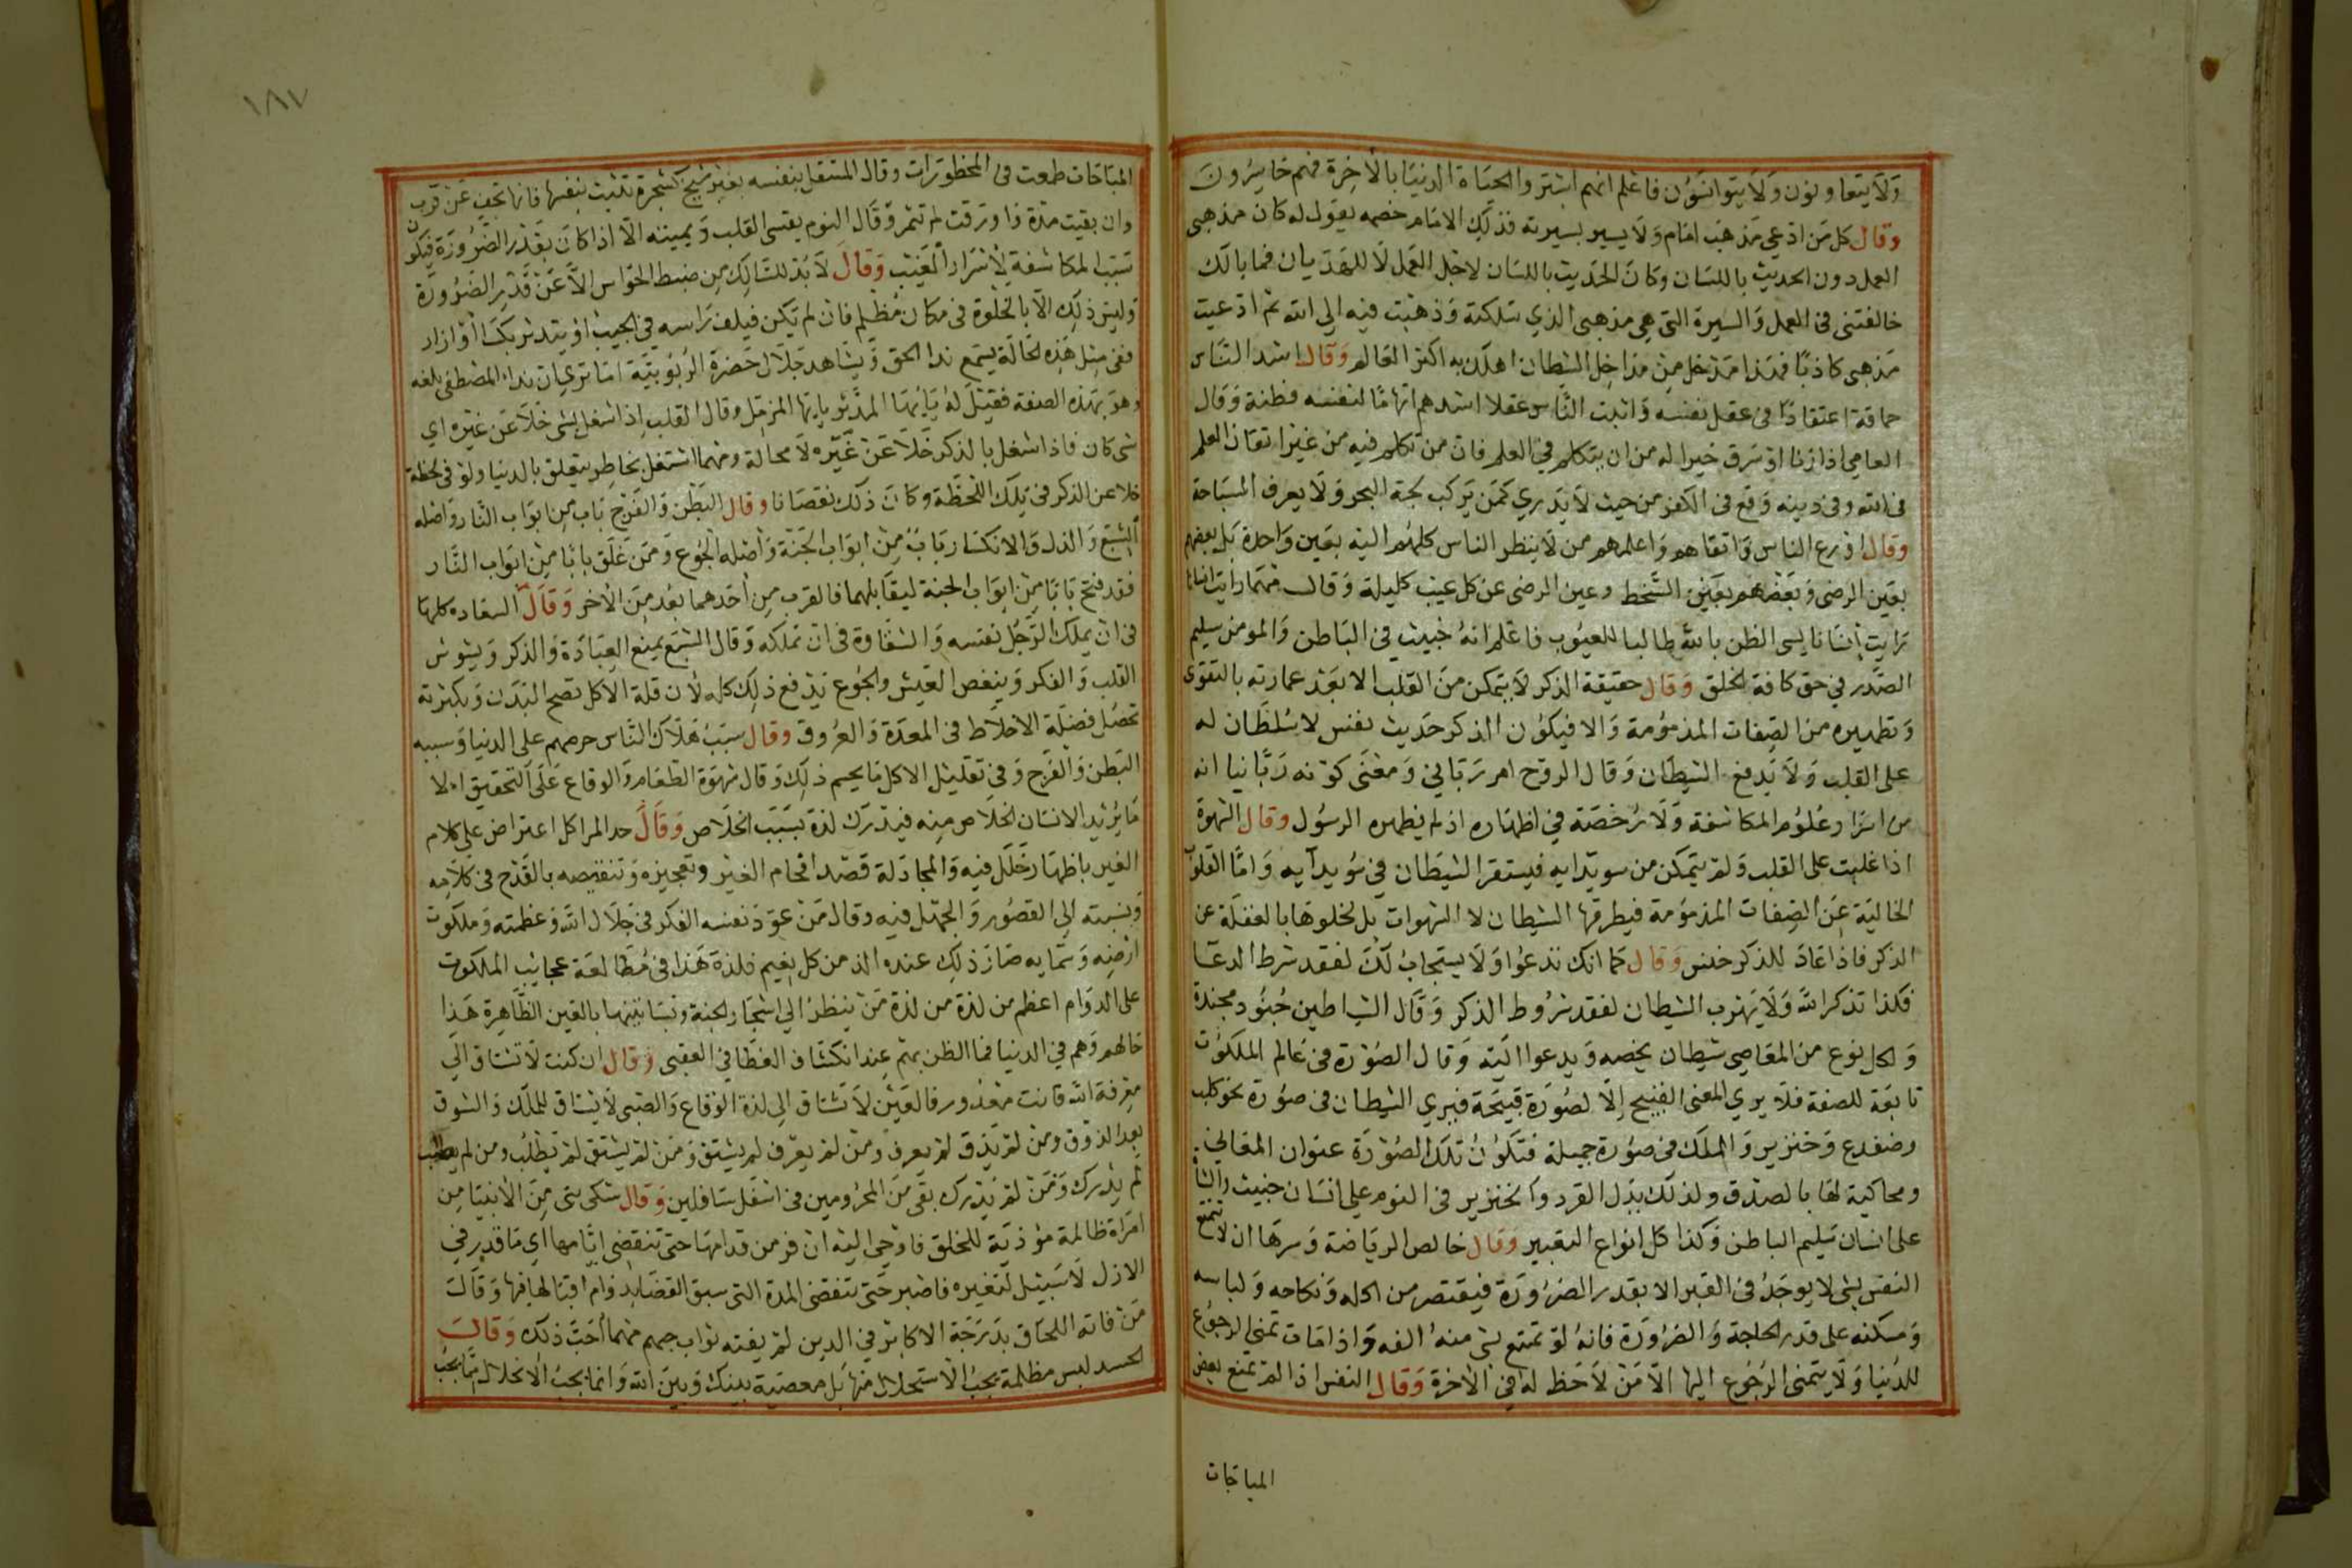 ولا يتعاونون ولا يتوانسون فاعلم انهم اشتروا الحياة الدنيا بالآخرة فهم خاسرون
وقال كل من ادعي مذهب امام ولا يسير بسيرته فذلك الامام خصمه يقول له كان مذهبي
العمل دون الحديث باللسان وكان الحديث باللسان لاجل العمل لا للهذيان فما بالك
خالفتني في العمل والسيرة التي هي مذهبي الذي سلكته وذهبت فيه الي الله ثم ادعيت
مذهبي كاذبا فهذا مدخل من مداخل الشيطان اهلك به اكثر العالم وقال اشد الناس
حماقة اعتقادا في عقل نفسه واثبت الناس عقلا اشدهم اتهاما لنفسه فطنة وقال
العامي اذا زنا او سرق خيرا له من ان يتكلم في العلم فان من تكلم فيه من غير اتقان العلم
في الله وفي دينه وقع في الكفر من حيث لا يدري كمن يركب لجة البحر ولا يعرف السباحة
وقال اورع الناس واتقاهم واعلمهم من لا ينظر الناس كلهم اليه بعين واحدة بل بعضهم
بعين الرضي وبعضهم بعين السخط وعين الرضي عن كل عيب كليلة وقال مهما رايت انسانا
رايت انسانا يسي الظن بالله طالبا للعيوب فاعلم انه خبيث في الباطن والمومن سليم
الصدر في حق كافة الخلق وقال حقيقة الذكر لا يتمكن من القلب الا بعد عمارته بالتقوى
وتطهيره من الصفات المذمومة والا فيكون الذكر حديث نفس لا سلطان له
على القلب ولا يدفع الشيطان وقال الروح امر رباني ومعنى كونه ربانيا انه
من اسرار علوم المكاشفة ولا رخصة في اظهاره اذ لم يظهره الرسول وقال الشهوة
اذا غلبت على القلب ولم يتمكن من سويدايه فيستقر الشيطان في سويدايه واما القلوب
الخالية عن الصفات المذمومة فيطرقها الشيطان لا الشهوات بل لخلوها بالغفلة عن
الذكر فاذا عاد للذكر خنس وقال كما انك تدعوا ولا يستجاب لك لفقد شرط الدعا
فكذا تذكر الله ولا يهرب الشيطان لفقد شروط الذكر وقال الشياطين جنود مجندة
ولكل نوع من المعاصي شيطان يخصه ويدعوا اليه وقال الصورة في عالم الملكوت
تابعة للصفة فلا يري المعنى القبيح الا لصورة قبيحة فيري الشيطان في صورة نحو كلب
وضفدع وخنزير والملك في صورة جميلة فتكون تلك الصورة عنوان المعاني
ومحاكية لها بالصدق ولذلك يدل القرد والخنزير في النوم على انسان خبيث والشاة
على انسان سليم الباطن وكذا كل انواع التعبير وقال خالص الرياضة وسرها ان لا تتمتع
النفس بشي لا يوجد في القبر الا بقدر الضرورة فيقتصر من اكله ونكاحه ولباسه
ومسكنه على قدر الحاجة والضرورة فانه لو تمتع بشي منه الفه واذا مات تمنى الرجوع
للدنيا ولا يتمنى الرجوع اليها الا من لا حظ له في الآخرة وقال النفس اذا لم تمنع بعض
المباحات
١٨٧
المباحات طمعت في المحظورات وقال المستقل بنفسه بغير شيخ كشجرة تنبت بنفسها فانها تجف عن قرب
وان بقيت مدة واورقت لم تثمر وقال النوم يقسي القلب ويميته الا اذا كان بقدر الضرورة فيكون
سبب المكاشفة لاسرار الغيب وقال لا بد للسالك من ضبط الحواس الا عن قدر الضرورة
وليس ذلك الا بالخلوة في مكان مظلم فان لم يكن فيلف راسه في الجيب او يتدثر بكساء او ازار
ففي مثل هذه الحالة يسمع ندا الحق ويشاهد جلال حضرة الربوبية اما تري ان نداء المصطفى بلغه
وهو بهذه الصفة فقيل له يا ايها المدثر يا ايها المزمل وقال القلب اذا شغل بشي خلا عن غيره اي
شي كان فاذا اشغل بالذكر خلا عن غيره لا محالة ومهما اشتغل بخاطر يتعلق بالدنيا ولو في لحظة
خلا عن الذكر في تلك اللحظة وكان ذلك نقصانا وقال البطن والفرج باب من ابواب النار واصله
الشبع والذل والانكسار باب من ابواب الجنة واصله الجوع ومن غلق بابا من ابواب النار
فقد فتح بابا من ابواب الجنة ليقابلهما فالقرب من احدهما بعد من الاخر وقال السعاده كلها
في ان يملك الرجل نفسه والشقاوة في ان تملكه وقال الشبع يمنع العبادة والذكر ويشوش
القلب والفكر وينغص العيش والجوع يدفع ذلك كله لان قلة الاكل تصح البدن وبكثرته
تحصل فضلة الاخلاط في المعدة والعروق وقال سبب هلاك الناس حرصهم على الدنيا وسببه
البطن والفرج وفي تقليل الاكل ما يحسم ذلك وقال شهوة الطعام والوقاع على التحقيق الا
ما يريد الانسان الخلاص منه فيدرك لذة بسبب الخلاص وقال حد المرا كل اعتراض علي كلام
الغير باظهار خلل فيه والمجادلة قصد افحام الغير وتعجيزه وتنقيصه بالقدح في كلامه
وبنسبته الي القصور والجهل فيه وقال من عود نفسه الفكر في جلال الله وعظمته وملكوت
ارضه وسمايه صار ذلك عنده الذ من كل نعيم فلذة هذا في مطالعة عجايب الملكوت
على الدوام اعظم من لذة من لذة من ينظر الي اشجار الجنة وبساتينها بالعين الظاهرة هذا
حالهم وهم في الدنيا فما الظن بهم عند انكشاف الغطا في العقبى وقال ان كنت لا تشتاق الي
معرفة الله فانت معذور فالعنين لا تشتاق الى لذة الوقاع والصبي لا يشتاق للملك والشوق
بعد الذوق ومن لم يذق لم يعرف ومن لم يعرف لم يشتق ومن لم يشتق لم يطلب ومن لم يطلب
لم يدرك ومن لم يدرك بقى من المحرومين في اسفل سافلين وقال شكى نبى من الانبيا من
امراة ظالمة موذية للخلق فاوحي اليه ان فر من قدامها حتى تنقضي ايامها اي ما قدر في
الازل لا سبيل لتغييره فاصبر حتى تنقضي المدة التي سبق القضا بدوام اقبالها فيها وقال
من فاته اللحاق بدرجة الاكابر في الدين لم يفته ثواب حبهم مهما احب ذلك وقال
الحسد ليس مظلمة يجب الاستحلال منها بل معصية بينك وبين الله وانما يجب الاحلال مما يجب